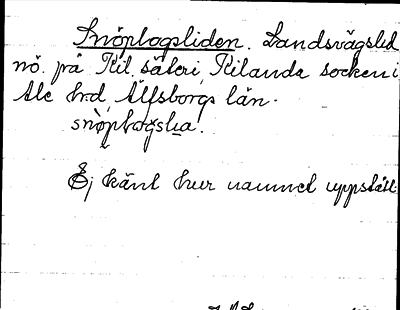 Snöplogsliden. Landsvägslid
nö. på Kil säteri, Kilanda socken i
Ale hd, Älfsborgs län.
snöplogslia.
Ej känt hur namnet uppstått.